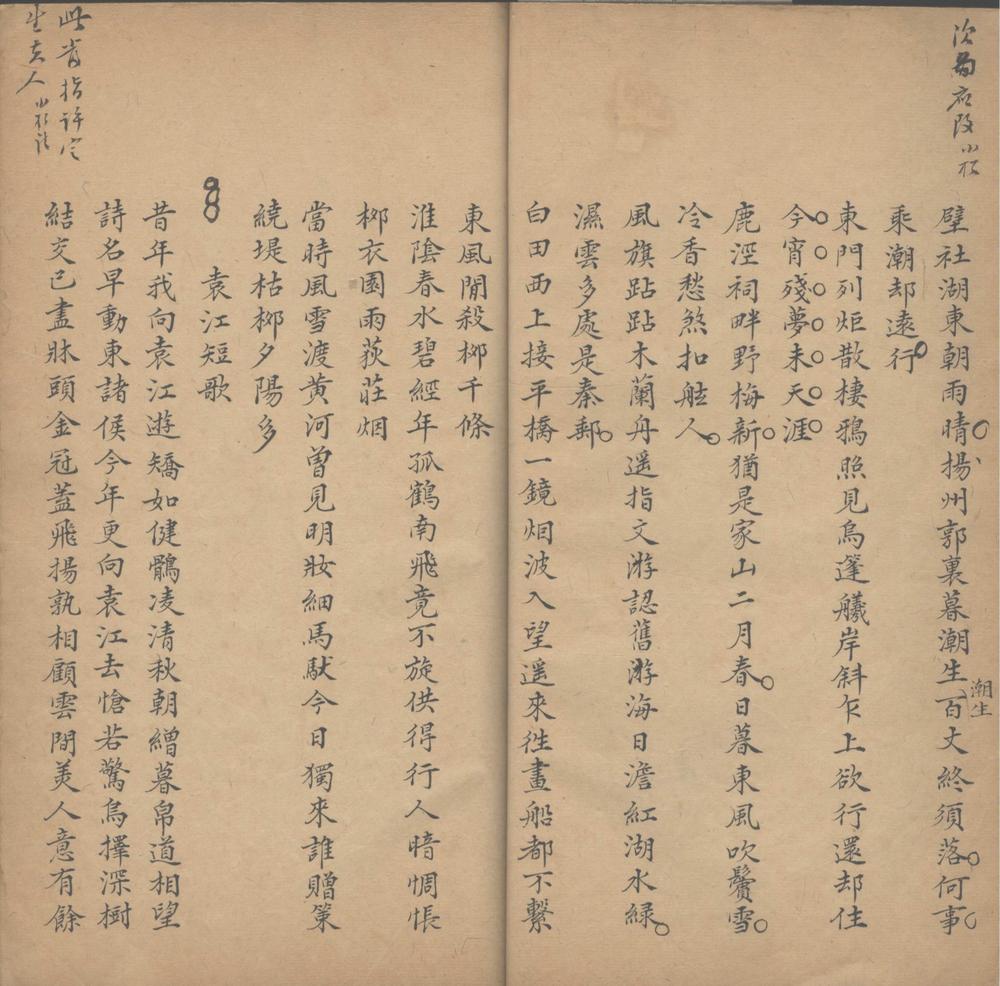 次首應改小招
甓社湖東朝雨晴揚州郭裏暮潮生百丈終須落何事
潮生
乘潮却遠行
東門列炬散棲鴉照見烏篷艤岸斜乍上欲行還却住
今宵殘夢未天涯
鹿涇祠畔野梅新猶是家山二月春日暮東風吹鬢雪
冷香愁煞扣舷人
風旗跕跕木蘭舟遥指文游認舊游海日澹紅湖水緑
濕雲多處是秦郵
白田西上接平橋一鏡烟波入望遥來往畫船都不繫
東風閒殺柳千條
淮陰春水碧經年孤鶴南飛竟不旋供得行人暗惆悵
柳衣園雨荻莊烟
當時風雪渡黃河曾見明妝細馬馱今日獨來誰贈策
繞堤枯柳夕陽多
袁江短歌
昔年我向袁江遊矯如健鶻凌清秋朝繒暮帛道相望
詩名早動東諸侯今年更向袁江去愴若驚烏擇深樹
結交已盡牀頭金冠蓋飛揚孰相顧雲間美人意有餘
此首指許定
生夫人